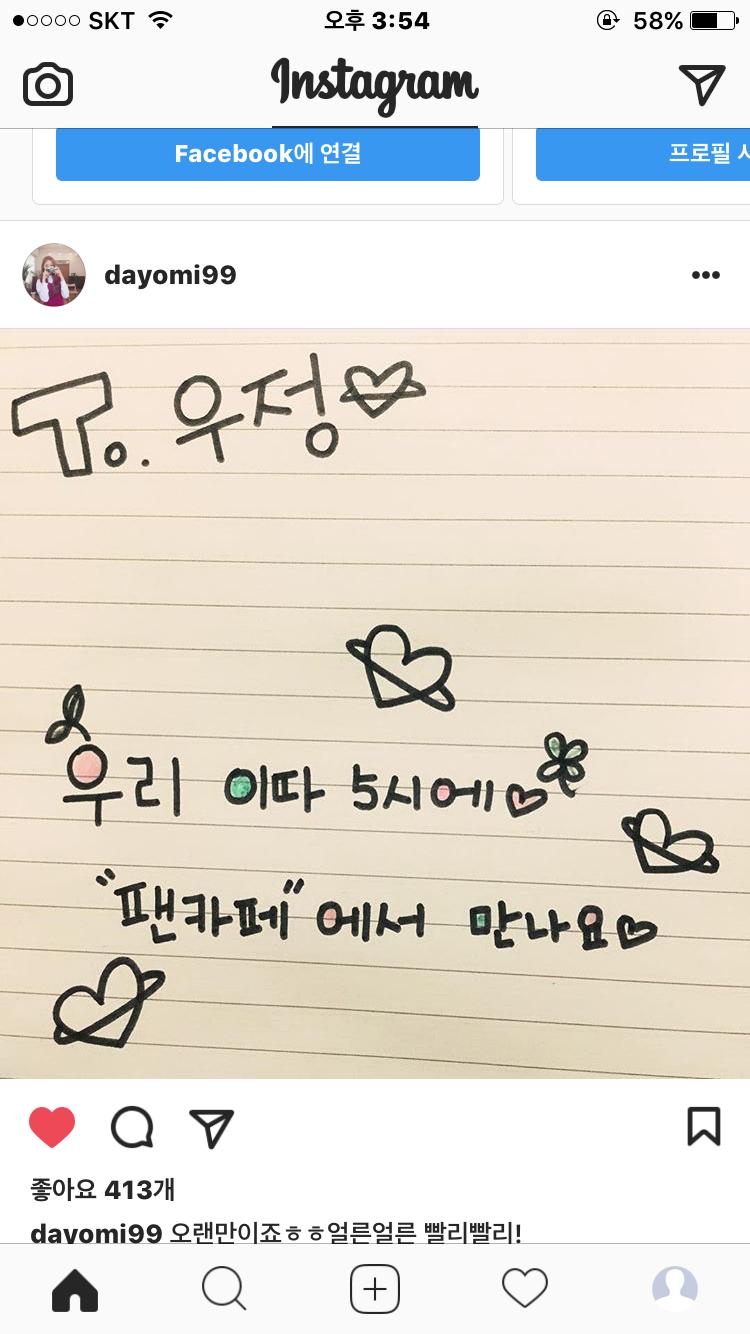 SKT 오후 3:54 58%
Instagram
Facebook에 연결 프로필 사
dayomi99
To. 우정
우리 이따 5시에
"팬카페"에서 만나요
좋아요 413개
dayomi99 오랜만이죠ㅎㅎ얼른얼른 빨리빨리!